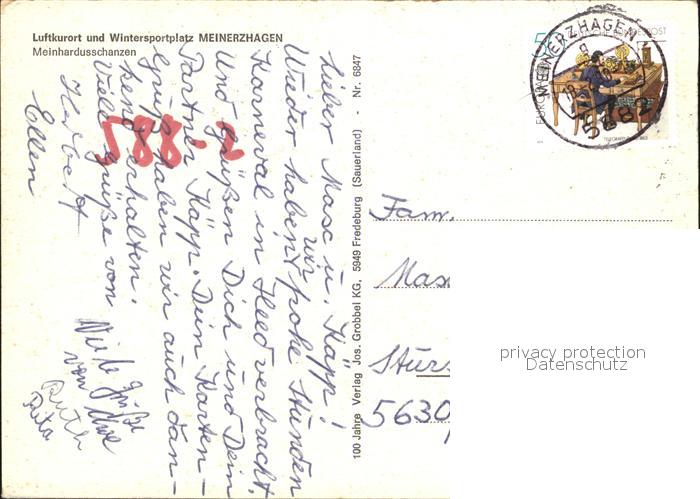 Luftkurort und Wintersportplatz MEINERZHAGEN
Meinhardusschanzen
Lieber Max u. Käpp!
Wieder haben wir frohe Stunden
Karneval in Heed verbracht.
Und grüßen Dich und Dein
Partner Käpp. Dein Karten-
gruß haben wir auch dan-
kend erhalten.
Viele Grüße von
Herbert
Ellen
Viele Grüße
von Uwe
Ruth
Rita
100 Jahre Verlag Jos. Grobbel KG, 5949 Fredeburg (Sauerland) - Nr. 6847
MEINERZHAGEN
5882
Fam.
5630
privacy protection
Datenschutz